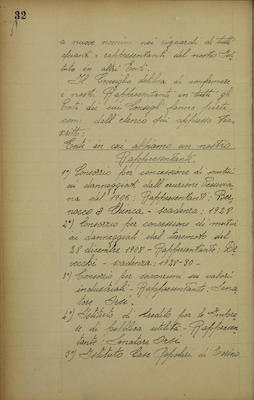 32
a nuove nomine nei riguardi di tutti
quanti i rappresentanti del nostro Isti
tuto in altri Enti.
Il Consiglio delibera di confermare
i nostri Rappresentanti in tutti gli
Enti dei cui Consigli fanno parte
come dall'elenco qui appresso tra
scritto:
Enti in cui abbiamo un nostro
Rappresentante
1°) Consorzio per concessione di mutui
ai danneggiati dall'eruzione Vesuvia
na del 1906: Rappresentanti:
e - scadenza: 1928
2°) Consorzio per concessione di mutui
ai danneggiati dal terremoto del
28 dicembre 1908 - Rappresentante: De
Vecchi - scadenza: 1928-30 -
3°) Consorzio per sovvenzioni su valori
industriali - Rappresentante: Sena
tore Orsi.
4°) Istituto di Credito per le Impre
se di pubblica utilità - Rappresen
tante: Senatore Orsi
5°) Istituto Case Popolari di Torino